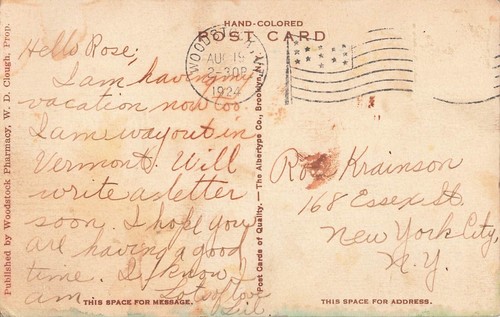 HAND-COLORED
POST CARD
Published by Woodstock Pharmacy, W. D. Clough, Prop.
Hello Rose,
I am having my
vacation now too
I am way out in
Vermont. Will
write a letter
soon. I hope you
are having a good
time. I know I
am. Lots of love
THIS SPACE FOR MESSAGE.
Post Cards of Quality. — The Albertype Co., Brooklyn,
AUG 19
2-30P
1924
Rose Krainson
168 Essex St.
New York City,
N.Y.
THIS SPACE FOR ADDRESS.